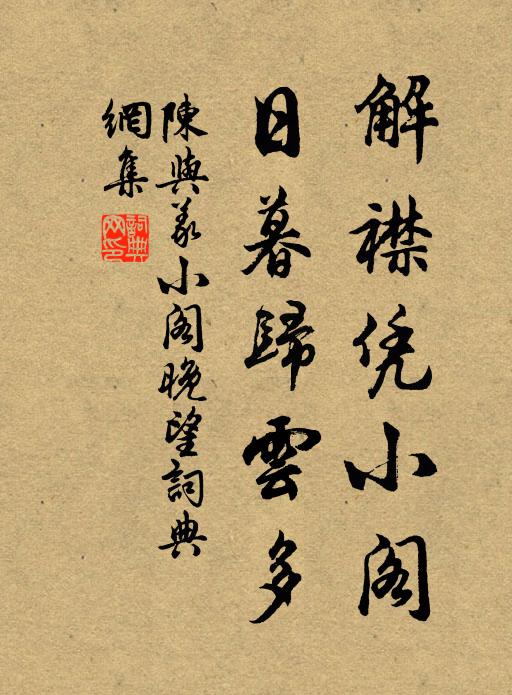 解襟凭小阁
日暮歸雲多
陳與義小阁晚望詞典
網集
詞典网印